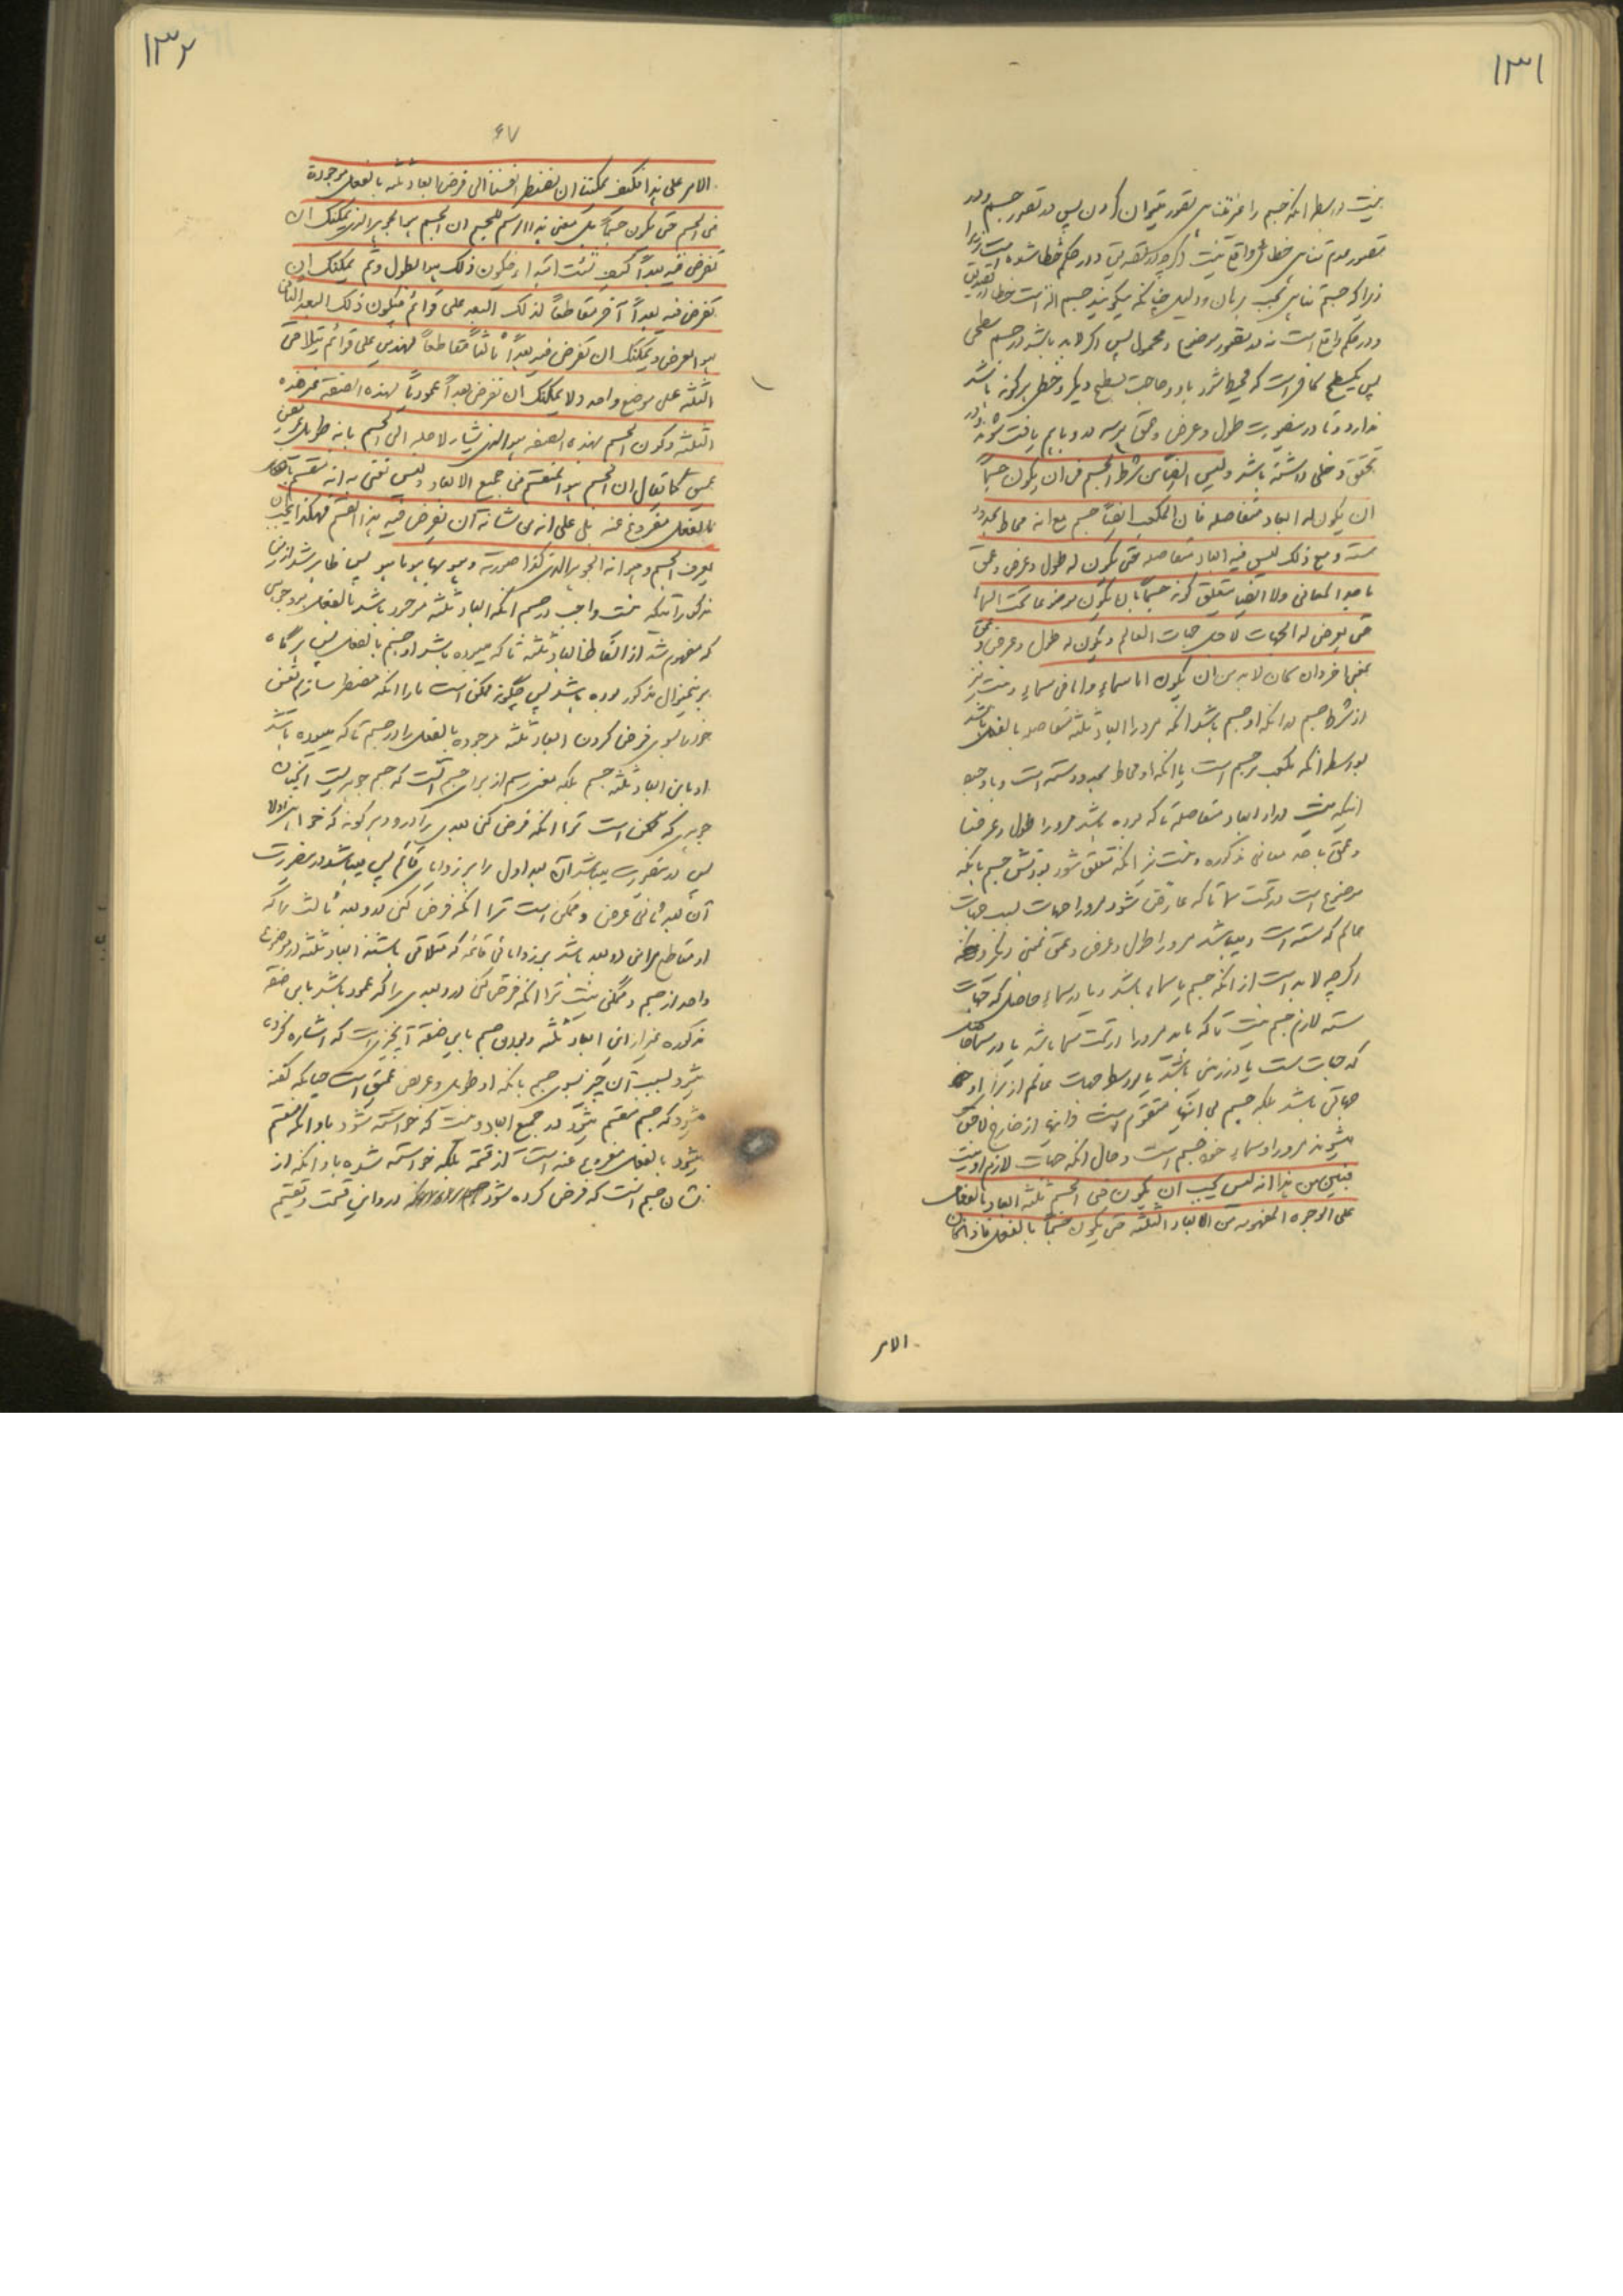 ١٣١
نیست بواسطه آنکه جسم را غیر متناهی تصور میتوان کردن پس در تصور جسم و در
تصور عدم تناهی خطائی واقع نیست اگرچه در تصدیق و در حکم خطا شده است زیرا
زیراکه جسم متناهی بحسب برهان و دلیل چنانکه میگویند جسم
و در حکم واقع است نه در تصور موضوع و محمول پس اگر لابد باشد در جسم سطحی
پس یک سطح کافی است که محیط شود باو و حاجت بسطح دیگر و خطی برگونه باشد
ندارد و تا در صورت طول و عرض و عمق هر سه در و باهم یافت شوند و در
تحقق دخلی داشته باشد ولیس ایضا من شرط الجسم فی ان یکون جسماً
ان یکون له ابعاد متفاصله فان المکعب ایضاً جسم مع انه محاط بحدود
سته و مع ذلک لیس فیه ابعاد متفاصله حتی یکون له طول و عرض و عمق
باحد المعانی ولا ایضا یتعلق کونه جسماً بان یکون موضوعا تحت السماء
حتی یعرض له الجهات لاجل جهات العالم و یکون له طول و عرض و عمق
بمعنی آخر وان کان لابد من ان یکون اما سماء و اما فی سماء و نیست نیز
از شرط جسم در آنکه او جسم باشد آنکه مر او را ابعاد ثلثه متفاصله بالفعل باشد
بواسطه آنکه مکعب نیز جسم است با آنکه او محاط بحدود سته است و با وجود
اینکه نیست در او ابعاد متفاصله تا که بوده باشد مر او را طول و عرض
و عمق باحد معانی مذکوره و نیست نیز آنکه متعلق شود بودنش جسم بآنکه
موضوع است در تحت سما تا که عارض شود مر او را جهات بسبب جهات
عالم که سته است و میباشد مر او را طول و عرض و عمق بمعنی دیگر
اگرچه لابد است از آنکه جسم یا سماء باشد و یا در سماء حاصل که جهات
سته لازم جسم نیست تا که باید مر او را در تحت سما باشد یا در سما
که جهات ست یا در زمین باشد یا بواسطه جهت عالم از برا او
جهاتی باشد بلکه جسم بی اینها متقوم است و اینها از خارج لاحق
میشوند مر او را و سماء خود جسم است و حال آنکه جهات لازم او نیست
فتبین من هذا انه لیس یجب ان یکون فی الجسم ثلثه ابعاد بالفعل
علی الوجوه المفهومه من الابعاد الثلثه حتی یکون جسماً بالفعل فاذا کان
الامر
١٣٢
٤٧
الامر علی هذا فکیف یمکننا ان نضطر انفسنا الی فرض ابعاد ثلثه بالفعل موجودة
فی الجسم حتی یکون جسماً بل معنی هذا الرسم للجسم ان الجسم هو الجوهر الذی یمکنک ان
تفرض فیه بعداً کیف شئت ابتداء فیکون ذلک هو الطول وثم یمکنک ان
تفرض فیه بعداً آخر مقاطعاً لذلک البعد علی قوائم فیکون ذلک البعد الثانی
هو العرض و یمکنک ان تفرض فیه بعداً ثالثاً مقاطعاً لهذین علی قوائم یتلاقی
الثلثه علی موضع واحد ولا یمکنک ان تفرض بعداً عمودیاً بهذه الصفة غیر هذه
الثلثه و کون الجسم بهذه الصفه هو الذی یشار لاجله الی الجسم بانه طویل عریض
عمیق کما یقال ان الجسم هو المنقسم فی جمیع الابعاد ولیس نعنی به انه منقسم
بالفعل مفروغ عنه بل علی انه من شانه ان یفرض فیه هذا القسم فهکذا یجب ان
یعرف الجسم و هو انه الجوهر الذی کذا صورته و هو بها هو ما هو پس ظاهر شد ازین
مذکورات اینکه نیست واجب در جسم آنکه ابعاد ثلثه موجود باشد بالفعل بر وجوهی
که مفهوم شد از الفاظ ابعاد ثلثه تا که میبوده باشد او جسم بالفعل پس هرگاه
بر این منوال مذکور بوده باشد پس چگونه ممکن است ما را آنکه مضطر سازیم نفس
خود را بسوی فرض کردن ابعاد ثلثه موجوده بالفعل را در جسم تا که میبوده باشد
او باین ابعاد ثلثه جسم بلکه معنی رسم از برای جسم آنست که جسم جوهریست آنچنان
جوهری که ممکن است ترا آنکه فرض کنی بعدی را درو بهرگونه که خواهی اولا
پس در صورت میباشد آن بعد اول را بر زوایای قائم پس میباشد در صورت
آن بعد ثانی عرض و ممکن است ترا آنکه فرض کنی درو بعد ثالث را که
او متقاطع مر این دو بعد باشد بر زوایای قائمه که متلاقی باشند ابعاد ثلثه در موضوع
واحد از جسم و ممکن نیست ترا آنکه فرض کنی درو بعدی را که عمود باشد باین صفة
مذکوره غیر از این ابعاد ثلثه و بودن جسم باین صفة آن چیزیست که اشاره کرده
میشود بسبب آن چیز بسوی جسم بآنکه او طویل و عریض عمیق است چنانکه گفته
میشود که جسم منقسم میشود در جمیع ابعاد و نیست که خواسته شود باو آنکه منقسم
میشود بالفعل مفروغ عنه است از قسمة بلکه خواسته شده باو آنکه از
شان جسم است که فرض کرده شود درو این قسمت و تقسیم